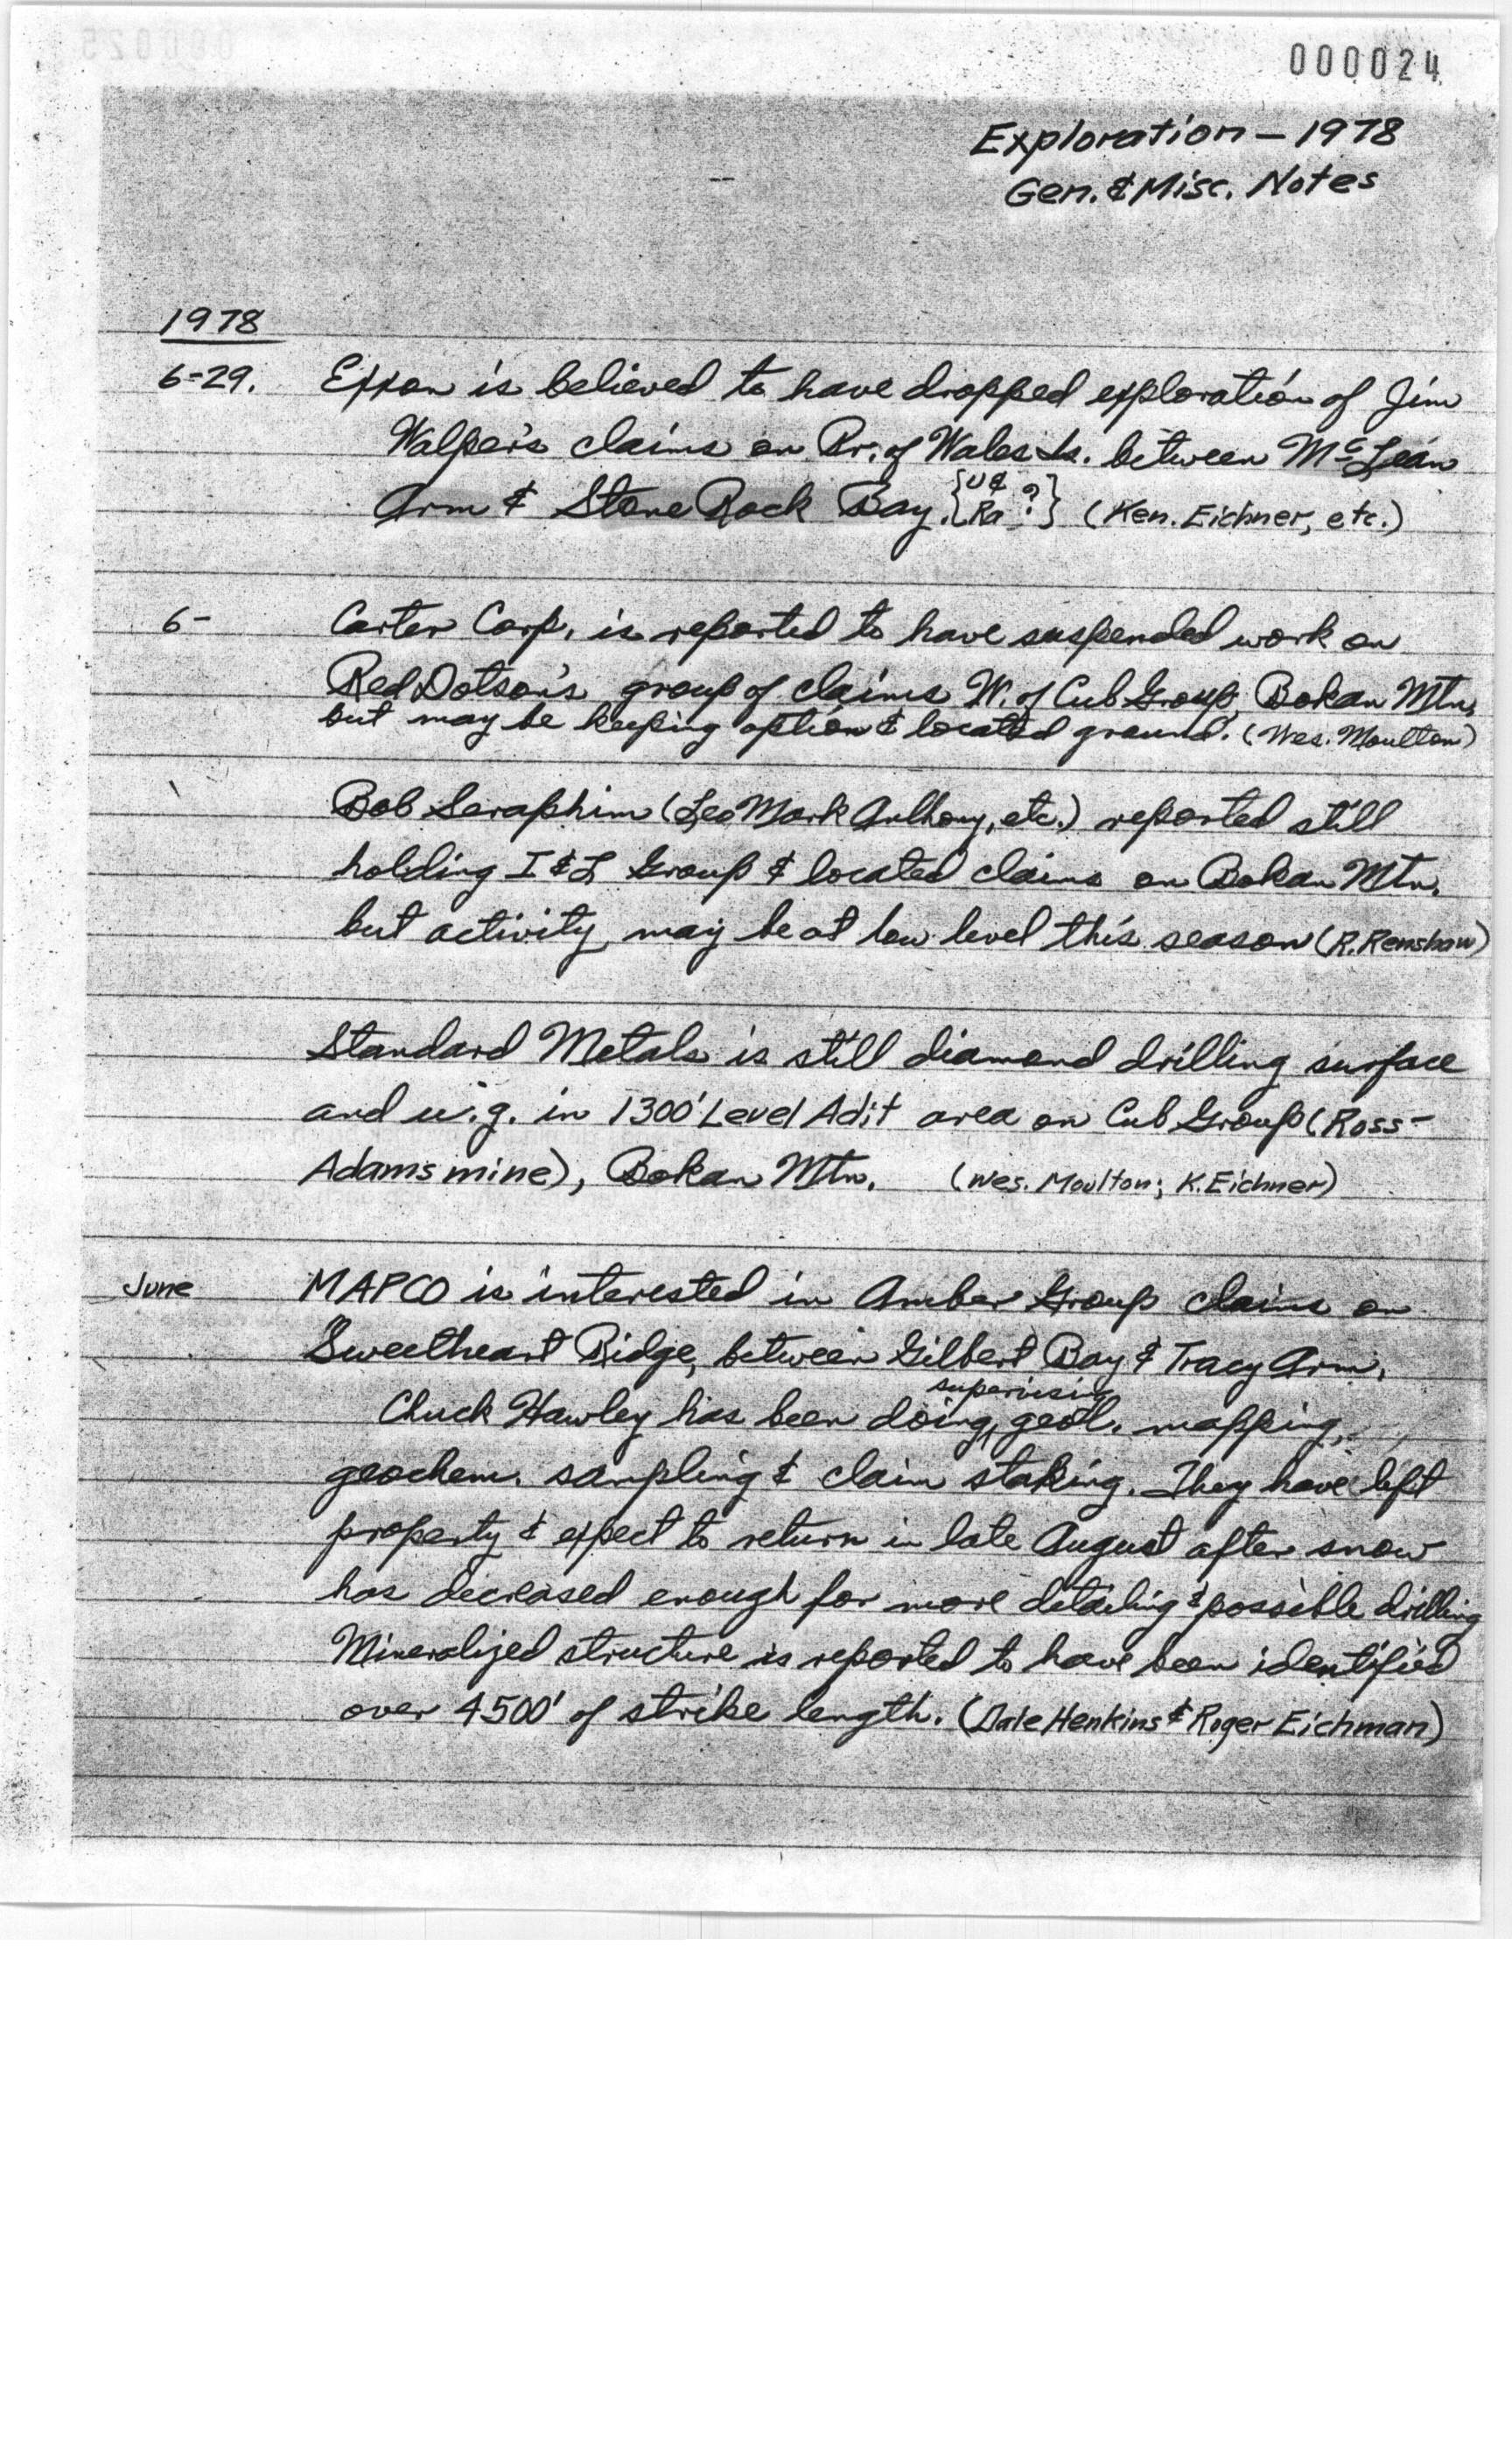 000024
Exploration – 1978
Gen. & Misc. Notes
1978
6-29. Exxon is believed to have dropped exploration of Jim
Walper's claims on Pr. of Wales Is. between McLean
Arm & Stone Rock Bay. {U & Ra ?} (Ken. Eichner, etc.)
6- Carter Corp. is reported to have suspended work on
Red Dotson's group of claims W. of Cub Group, Bokan Mtn,
but may be keeping option & located ground. (Wes. Moulton)
Bob Seraphim (Leo Mark Anthony, etc.) reported still
holding I & L Group & located claims on Bokan Mtn.
but activity may be at low level this season (R. Renshaw)
Standard Metals is still diamond drilling surface
and u.g. in 1300' Level Adit area on Cub Group (Ross-
Adams mine), Bokan Mtn. (Wes. Moulton; K. Eichner)
June MAPCO is interested in Amber Group claims on
Sweetheart Ridge, between Gilbert Bay & Tracy Arm.
Chuck Hawley has been doing, supervising geol. mapping,
geochem. sampling & claim staking. They have left
property & expect to return in late August after snow
has decreased enough for more detailing & possible drilling
Mineralized structure is reported to have been identified
over 4500' of strike length. (Dale Henkins & Roger Eichman)